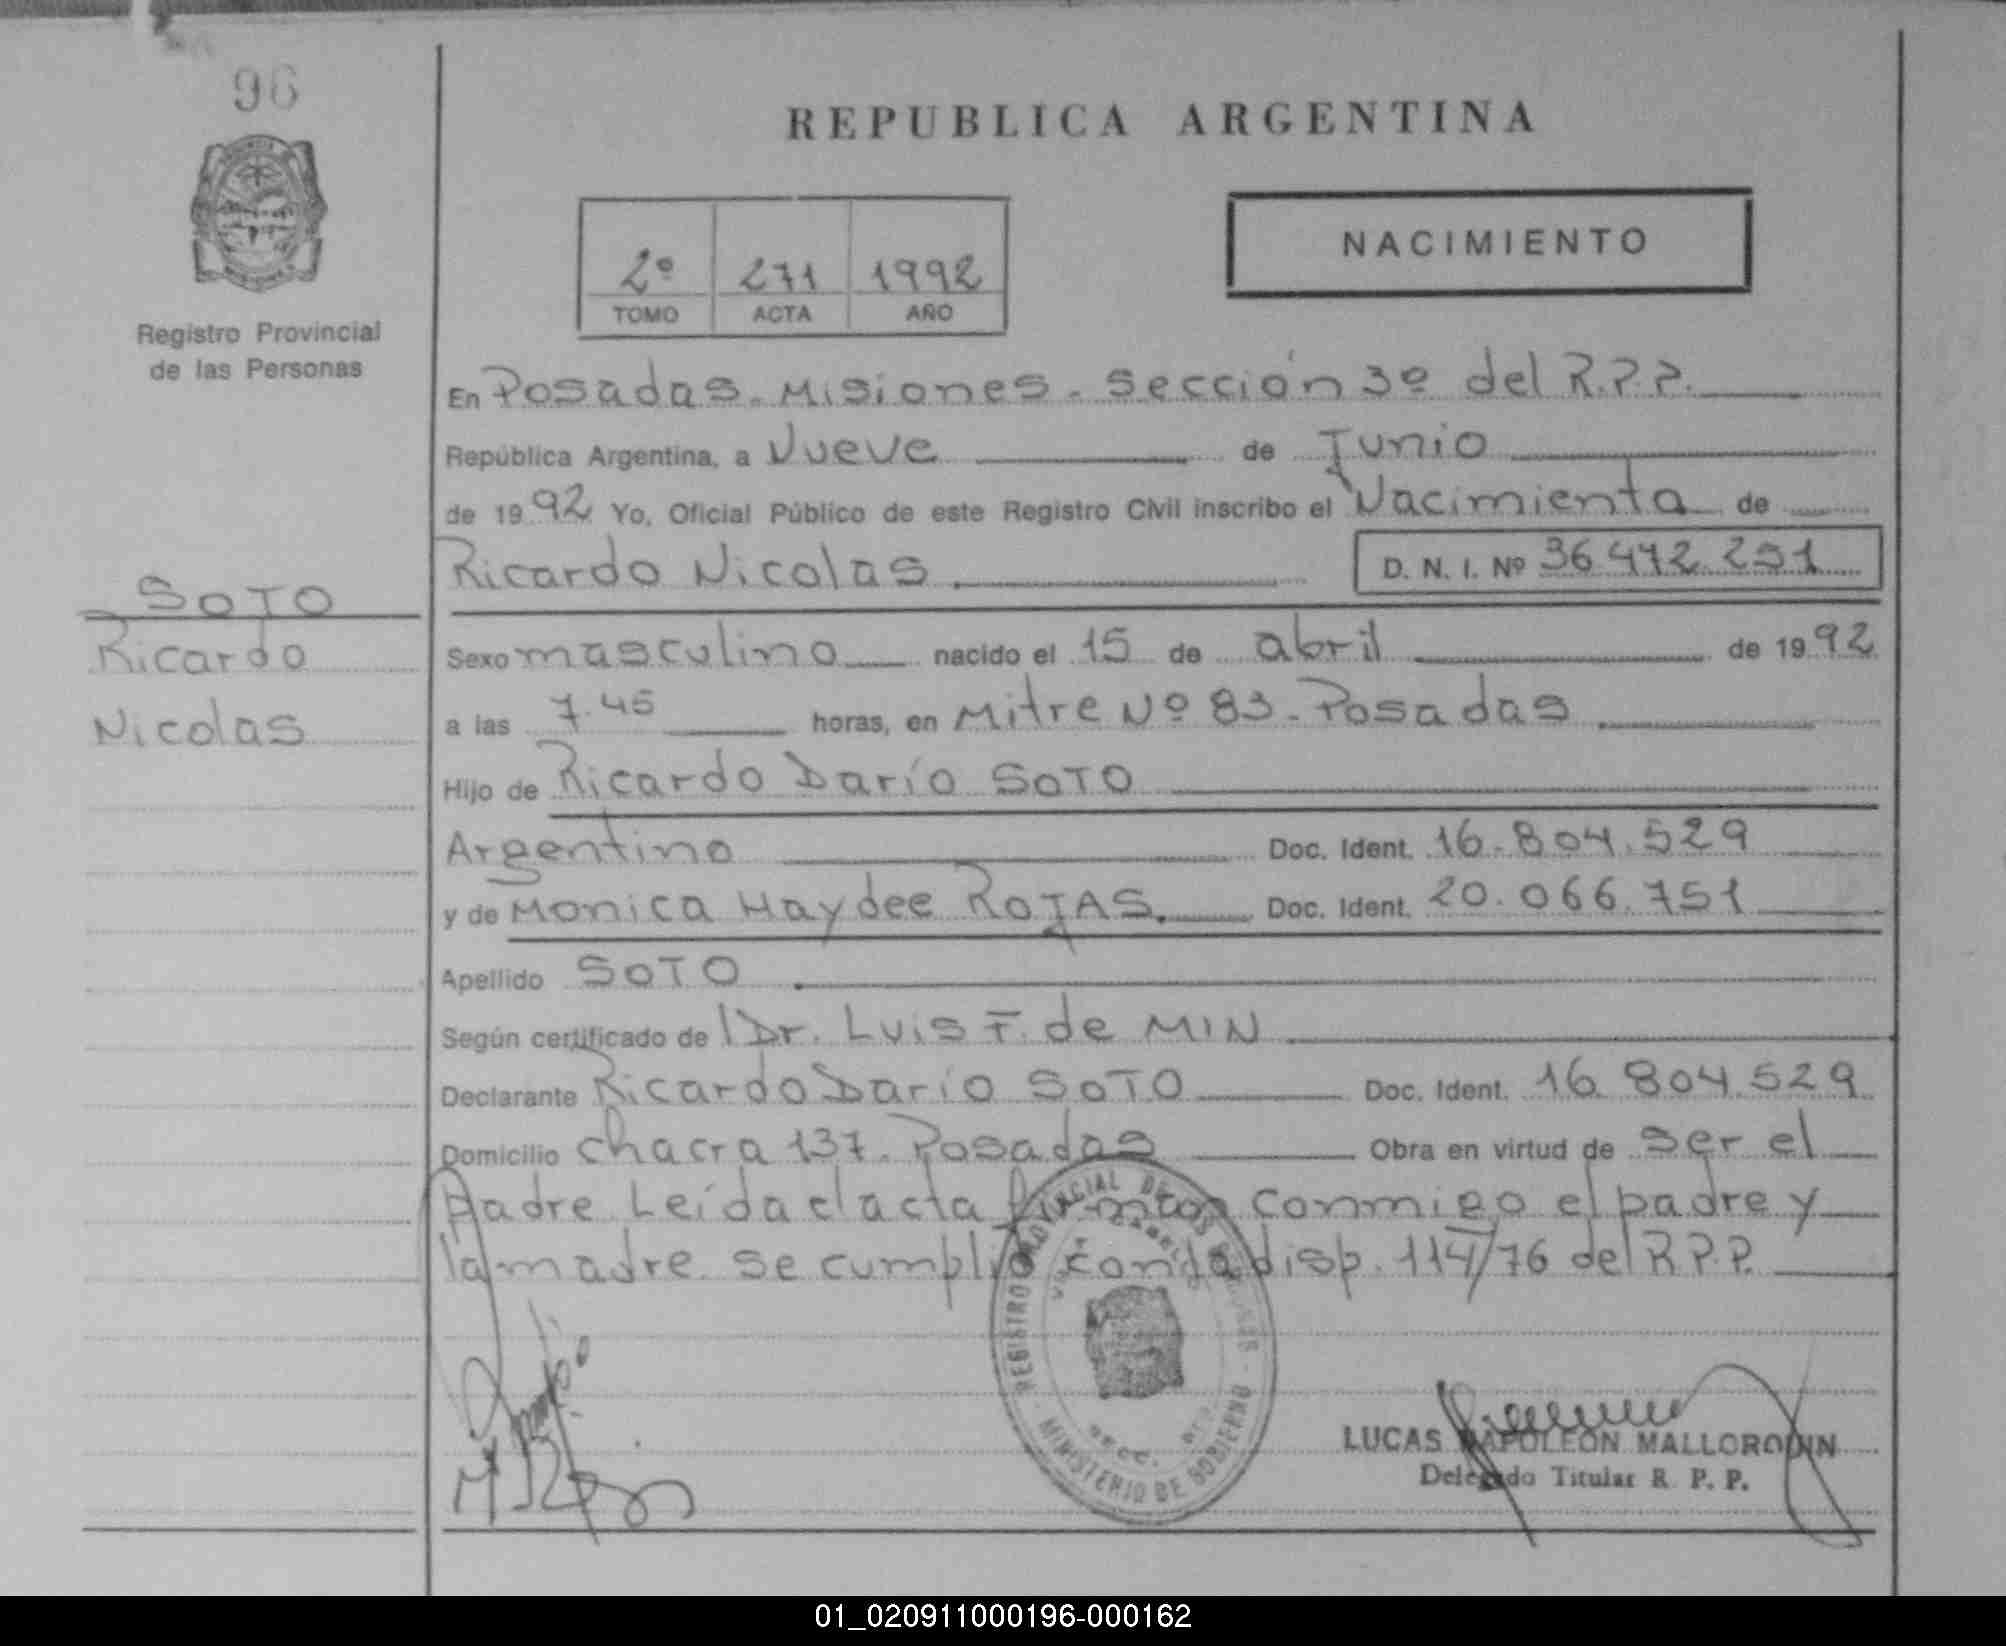 96
REPUBLICA ARGENTINA
NACIMIENTO
2º 271 1992
TOMO ACTA AÑO
Registro Provincial
de las Personas
En Posadas. Misiones. Sección 3º del R.P.P.
República Argentina, a Nueve de Junio
de 1992 Yo, Oficial Público de este Registro Civil inscribo el Nacimiento de
Ricardo Nicolas D. N. I. Nº 36.472.251
SOTO
Ricardo
Nicolas
Sexo masculino nacido el 15 de abril de 1992
a las 7.45 horas, en Mitre Nº 83. Posadas
Hijo de Ricardo Darío SOTO
Argentino Doc. Ident. 16.804.529
y de Monica Haydee ROJAS. Doc. Ident. 20.066.751
Apellido SOTO
Según certificado de l Dr. Luis F. de MIN
Declarante Ricardo Darío SOTO Doc. Ident. 16.804.529
Domicilio chacra 137. Posadas Obra en virtud de ser el
Padre. Leída el acta firman conmigo el padre y
la madre. se cumplió con la disp. 114/76 del R.P.P.
REGISTRO PROVINCIAL DE LAS PERSONAS - MINISTERIO DE GOBIERNO
LUCAS NAPOLEON MALLORQUIN
Delegado Titular R. P. P.
01_020911000196-000162